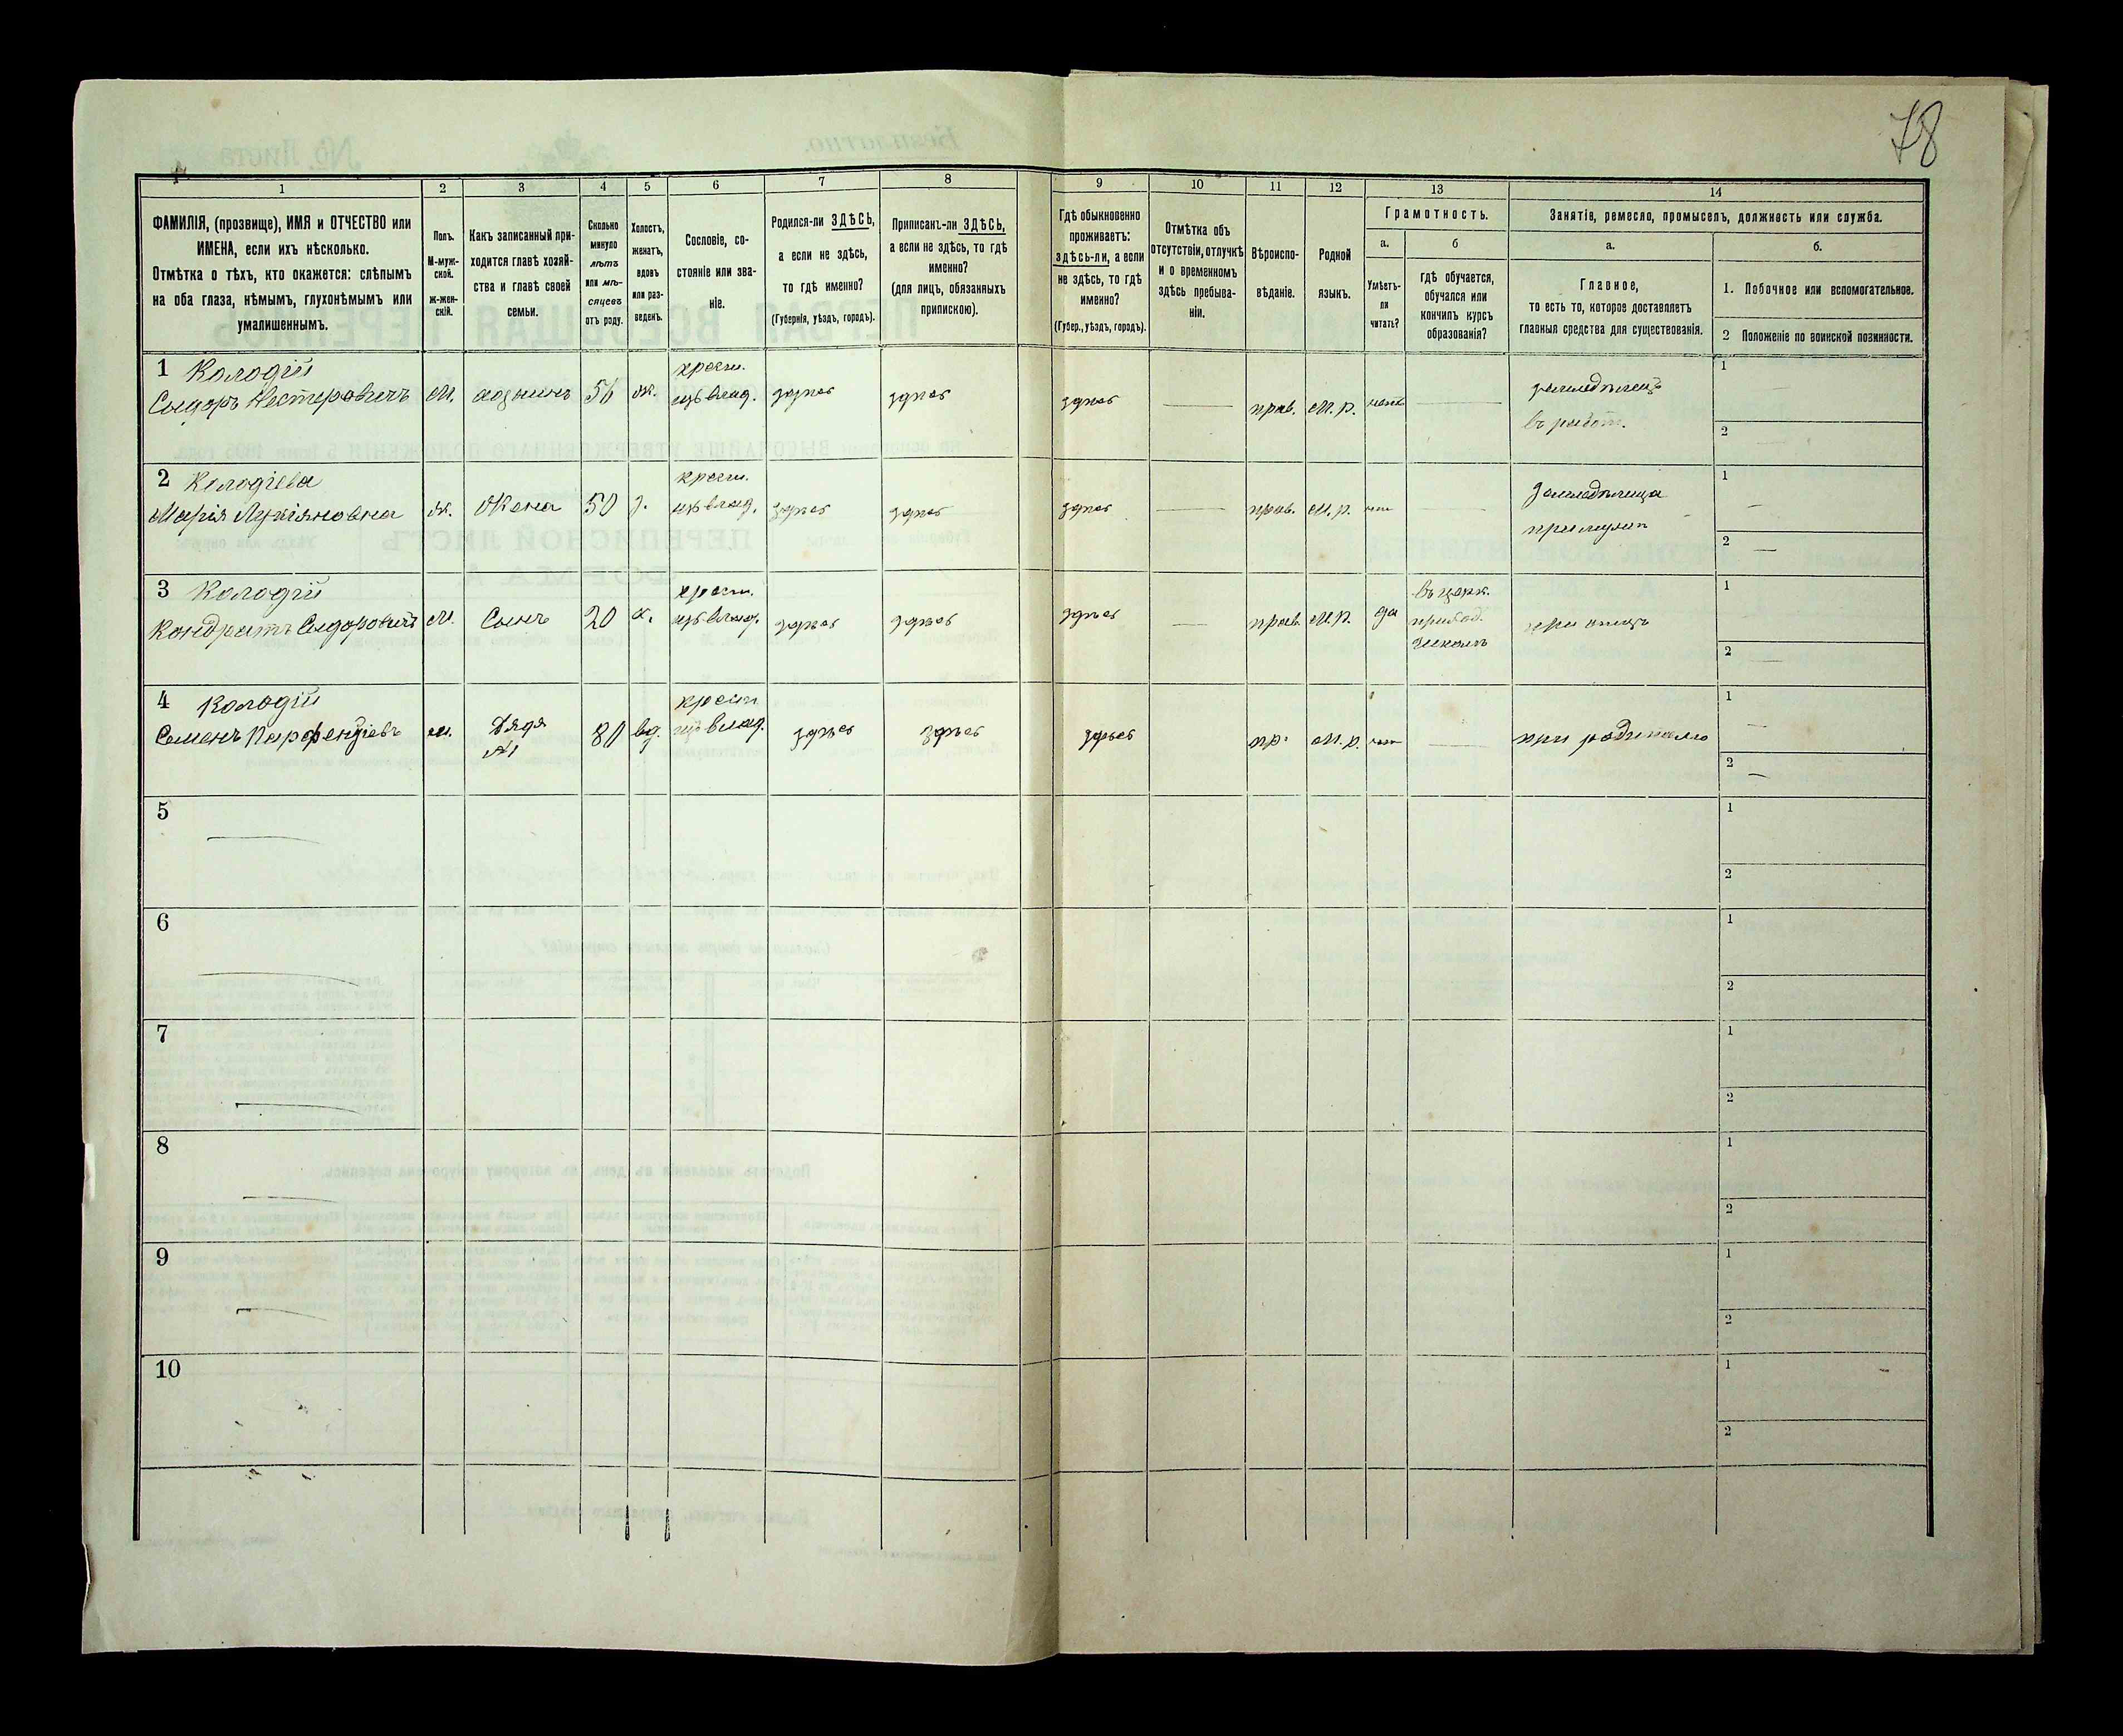 78
1 2 3 4 5 6 7 8 9 10 11 12 13 14
ФАМИЛІЯ, (прозвище), ИМЯ и ОТЧЕСТВО или
ИМЕНА, если ихъ нѣсколько.
Отмѣтка о тѣхъ, кто окажется: слѣпымъ
на оба глаза, нѣмымъ, глухонѣмымъ или
умалишеннымъ.
Полъ.
М-муж-
ской.
ж-жен-
скій.
Какъ записанный при-
ходится главѣ хозяй-
ства и главѣ своей
семьи.
Сколько
минуло
лѣтъ
или мѣ-
сяцевъ
отъ роду.
Холостъ,
женатъ,
вдовъ
или раз-
веденъ.
Сословіе, со-
стояніе или зва-
ніе.
Родился-ли ЗДѢСЬ,
а если не здѣсь,
то гдѣ именно?
(Губернія, уѣздъ, городъ).
Приписанъ-ли ЗДѢСЬ,
а если не здѣсь, то гдѣ
именно?
(для лицъ, обязанныхъ
припискою).
Гдѣ обыкновенно
проживаетъ:
здѣсь-ли, а если
не здѣсь, то гдѣ
именно?
(Губер., уѣздъ, городъ).
Отмѣтка объ
отсутствіи, отлучкѣ
и о временномъ
здѣсь пребыва-
ніи.
Вѣроиспо-
вѣданіе.
Родной
языкъ.
Грамотность.
а.
Умѣетъ-
ли
читать?
б
гдѣ обучается,
обучался или
кончилъ курсъ
образованія?
Занятіе, ремесло, промыселъ, должность или служба.
а.
Главное,
то есть то, которое доставляетъ
главныя средства для существованія.
б.
1. Побочное или вспомогательное.
2 Положеніе по воинской повинности.
1 Колодій крест.
Сидоръ Нестеровичъ М. хозяинъ 56 ж. изъ влад. здѣсь здѣсь здѣсь — прав. М.р. нетъ — земледѣлецъ 1 —
въ работ. 2 —
2 Колодіева крест.
Марія Лукіяновна ж. Жена 50 з. изъ влад. здѣсь здѣсь здѣсь — прав. М.р. нет — Земледѣлица 1 —
при мужѣ 2 —
3 Колодій крест. въ церк.
Кондратъ Сидоровичъ М. Сынъ 20 х. изъ влад. здѣсь здѣсь здѣсь — прав. М.р. да приход. при отцѣ 1
Школѣ 2 —
4 Колодій крест.
Семенъ Парфентіевъ м. Дядя 80 вд. изъ влад. здѣсь здѣсь здѣсь пр. М.р. нет — при 1 —
№1 2 —
5 — 1
2
6 — 1
2
7 — 1
2
8 — 1
2
9 — 1
2
10 1
2